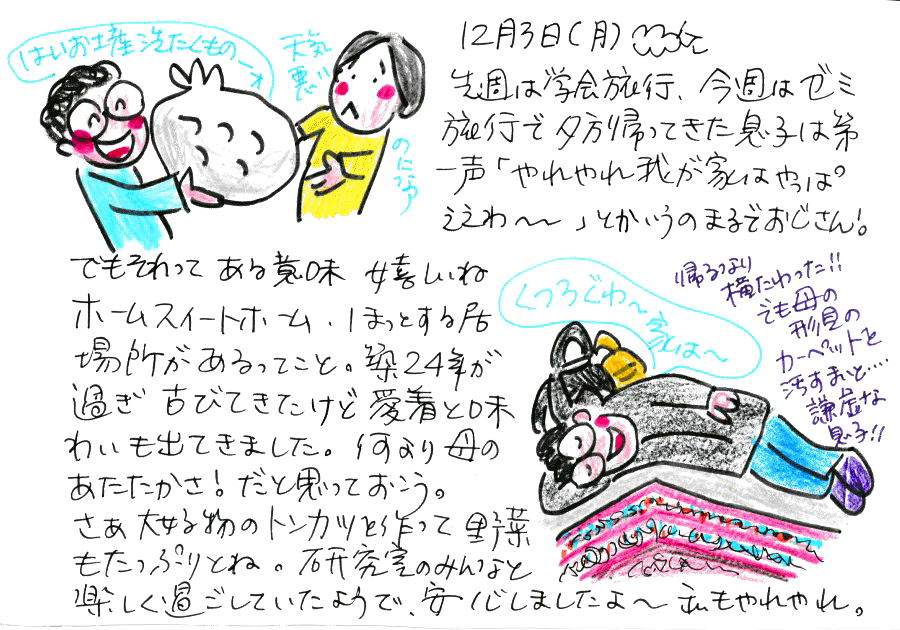 はいお土産洗たくものーォ
天気
悪い
のにィ
12月3日(月)
先週は学会旅行、今週はゼミ
旅行で夕方帰ってきた息子は第
一声「やれやれ我が家はやっぱ
ええわ〜〜」とかいうのまるでおじさん!
でもそれって ある意味 嬉しいね
ホームスイートホーム、ほっとする居
場所があるってこと。築24年が
過ぎ 古びてきたけど 愛着と味
わいも出てきました。何より母の
あたたかさ!だと思っておこう。
さぁ 大好物のトンカツを作って 野菜
もたっぷりとね。研究室のみんなと
楽しく過ごしていたようで、安心しましたよ〜 私もやれやれ。
くつろぐわ〜
家は〜
帰るなり
横たわった!!
でも母の
形見の
カーペットを
汚すまいと…
謙虚な
息子!!